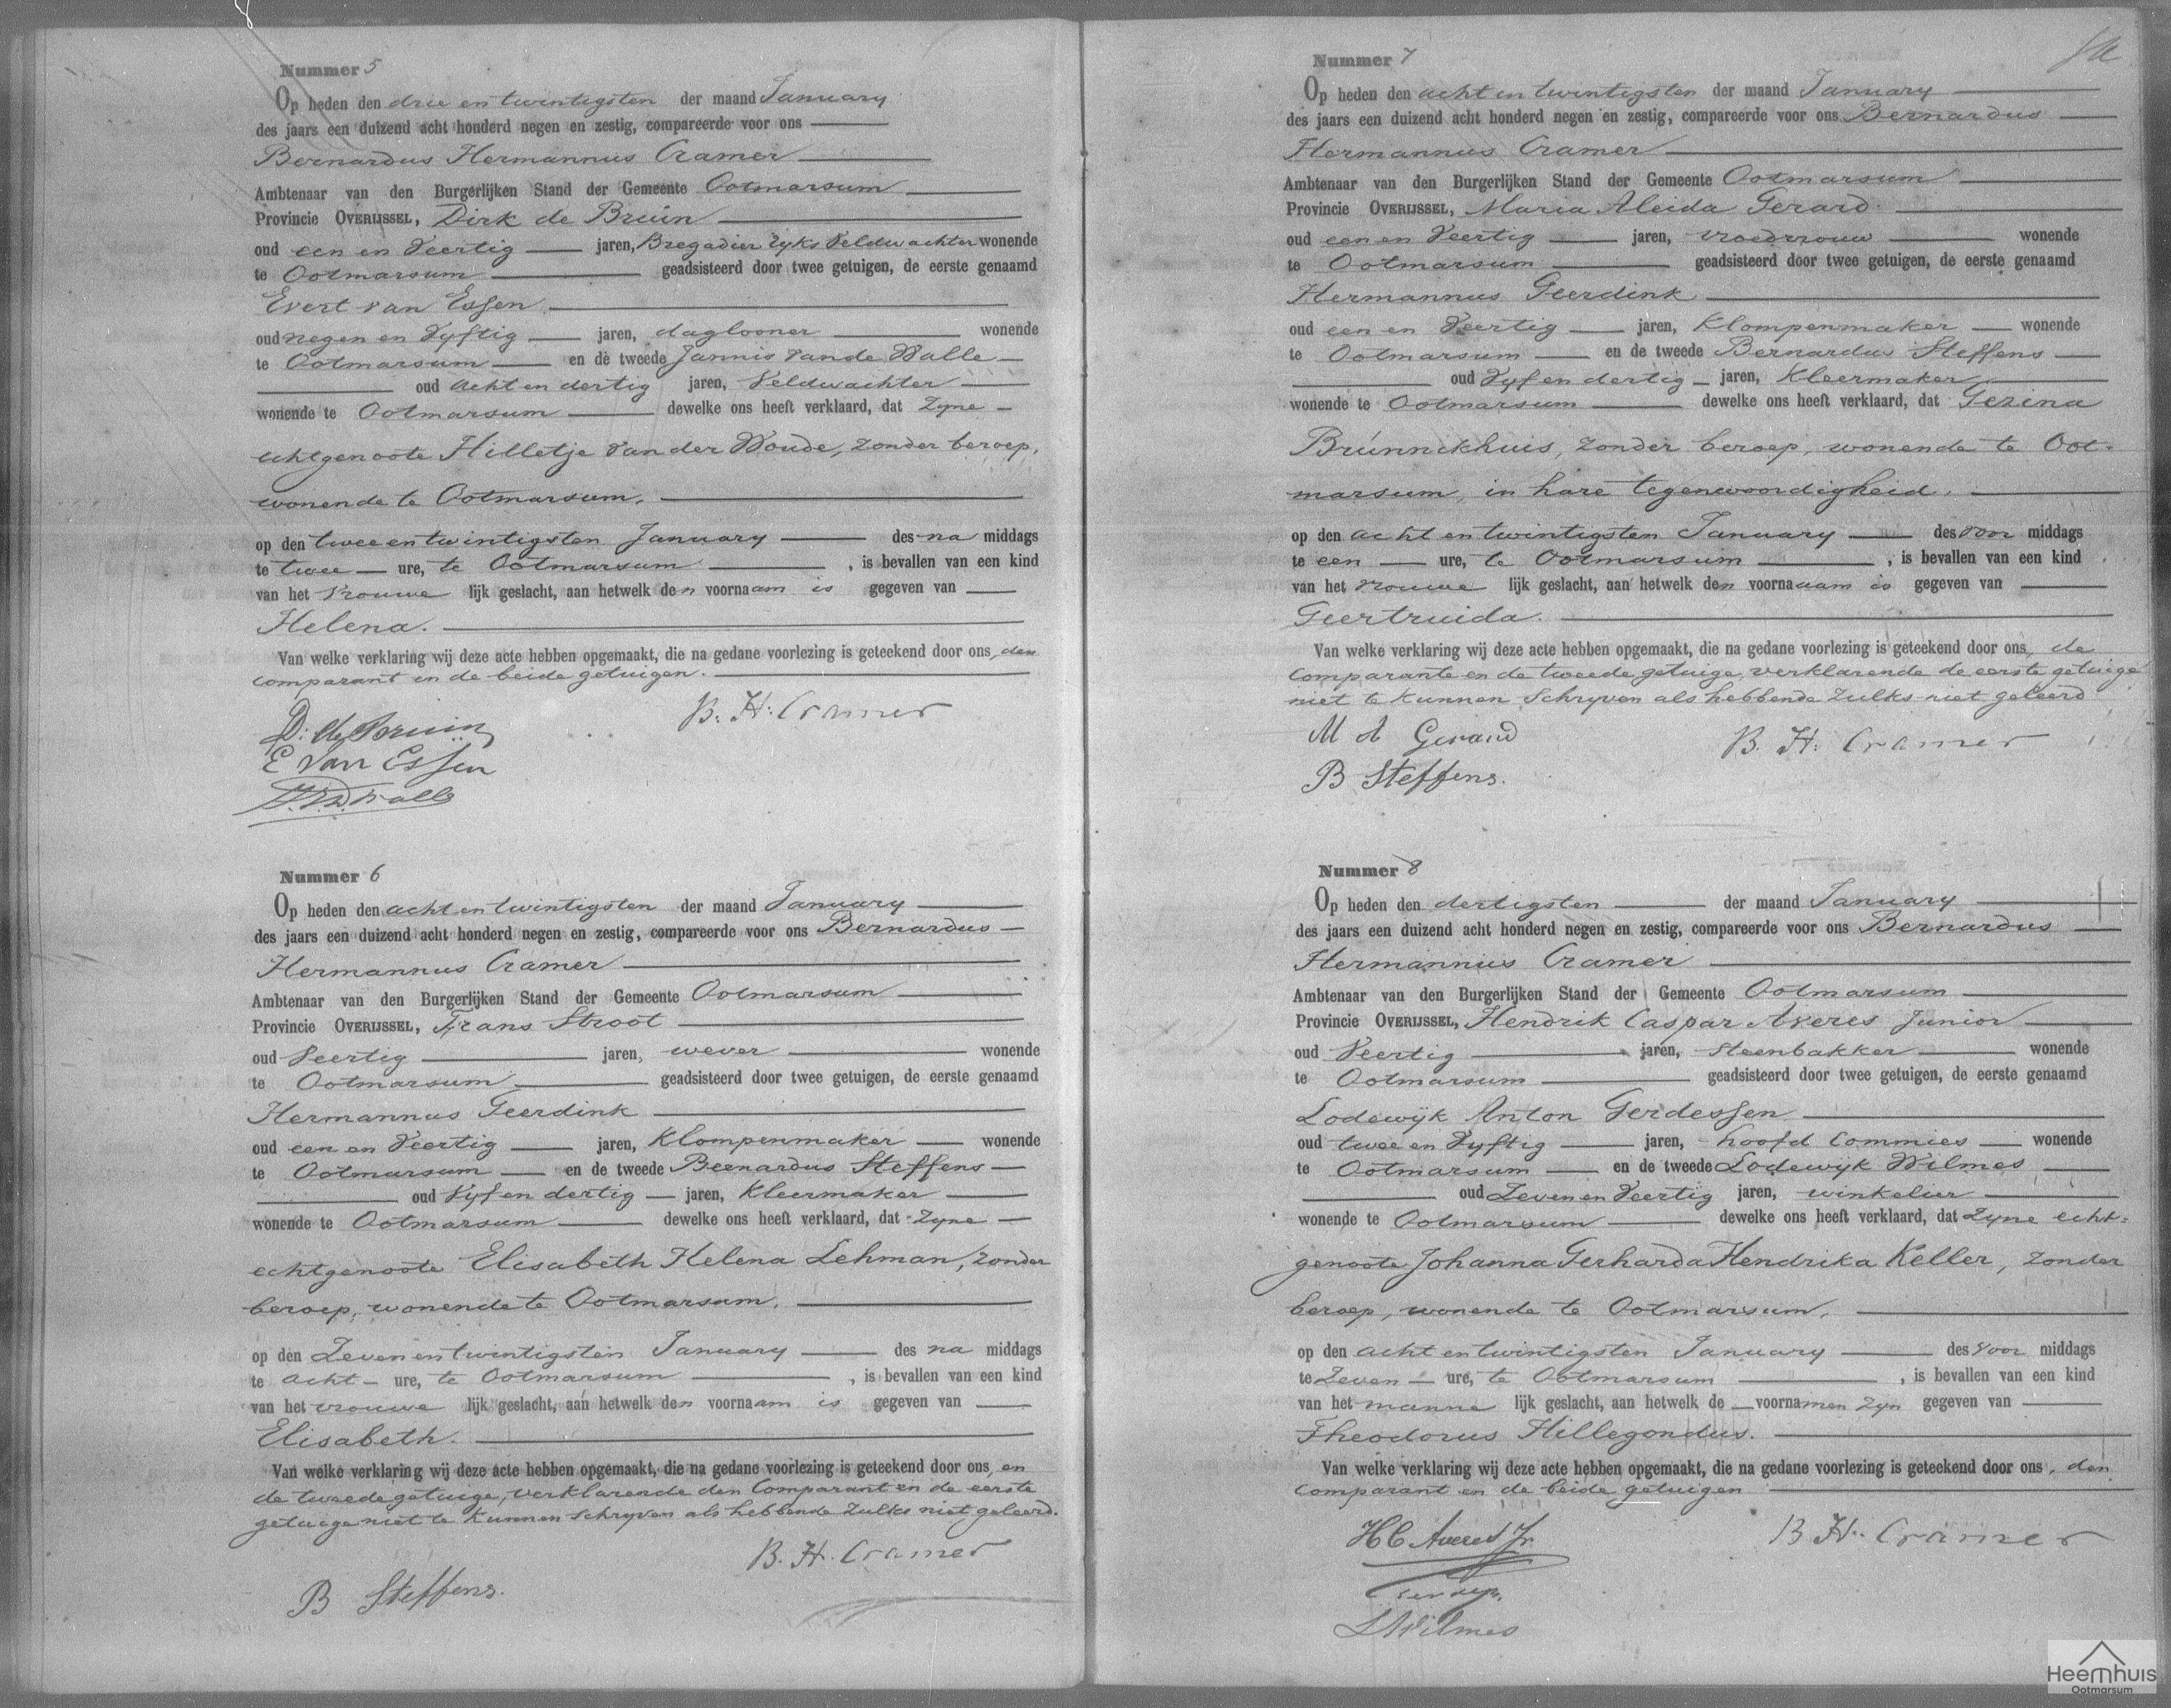 Nummer 5
Op heden den drie en twintigsten der maand January
des jaars een duizend acht honderd negen en zestig, compareerde voor ons
Bernardus Hermannus Cramer
Ambtenaar van den Burgerlijken Stand der Gemeente Ootmarsum
Provincie OVERIJSSEL, Dirk de Bruin
oud een en Veertig jaren, Bregadier Ryks Veldwachter wonende
te Ootmarsum geadsisteerd door twee getuigen, de eerste genaamd
Evert van Essen
oud negen en Vyftig jaren, daglooner wonende
te Ootmarsum en de tweede Jannis van de Walle
oud acht en dertig jaren, Veldwachter
wonende te Ootmarsum dewelke ons heeft verklaard, dat Zyne
echtgenoote Hilletje van der Woude, zonder beroep,
wonende te Ootmarsum,
op den twee en twintigsten January des na middags
te twee ure, te Ootmarsum, is bevallen van een kind
van het vrouwe lijk geslacht, aan hetwelk den voornaam is gegeven van
Helena.
Van welke verklaring wij deze acte hebben opgemaakt, die na gedane voorlezing is geteekend door ons, den
comparant en de beide getuigen.
B. H. Cramer
D: de Bruin
E van Essen
Nummer 6
Op heden den acht en twintigsten der maand January
des jaars een duizend acht honderd negen en zestig, compareerde voor ons Bernardus
Hermannus Cramer
Ambtenaar van den Burgerlijken Stand der Gemeente Ootmarsum
Provincie OVERIJSSEL, Frans Stroot
oud Veertig jaren, wever wonende
te Ootmarsum geadsisteerd door twee getuigen, de eerste genaamd
Hermannus Geerdink
oud een en Veertig jaren, Klompenmaker wonende
te Ootmarsum en de tweede Bernardus Steffens
oud Vyf en dertig jaren, Kleermaker
wonende te Ootmarsum dewelke ons heeft verklaard, dat Zyne
echtgenoote Elisabeth Helena Lehman, zonder
beroep, wonende te Ootmarsum,
op den Zeven en twintigsten January des na middags
te acht ure, te Ootmarsum, is bevallen van een kind
van het vrouwe lijk geslacht, aan hetwelk den voornaam is gegeven van
Elisabeth.
Van welke verklaring wij deze acte hebben opgemaakt, die na gedane voorlezing is geteekend door ons, en
de tweede getuige, verklarende den Comparant en de eerste
getuege niet te Kunnen schryven als hebbende zulks niet geleerd.
B. H. Cramer
B Steffens.
Nummer 7
Op heden den acht en twintigsten der maand January
des jaars een duizend acht honderd negen en zestig, compareerde voor ons Bernardus
Hermannus Cramer
Ambtenaar van den Burgerlijken Stand der Gemeente Ootmarsum
Provincie OVERIJSSEL, Maria Aleida Gerard
oud een en Veertig jaren, vroedvrouw wonende
te Ootmarsum geadsisteerd door twee getuigen, de eerste genaamd
Hermannus Geerdink
oud een en Veertig jaren, Klompenmaker wonende
te Ootmarsum en de tweede Bernardus Steffens
oud Vyf en dertig jaren, Kleermaker
wonende te Ootmarsum dewelke ons heeft verklaard, dat Gezina
Brúnnekhuis, zonder beroep, wonende te Oot-
marsum, in hare tegenwoordigheid,
op den acht en twintigsten January des voor middags
te een ure, te Ootmarsum, is bevallen van een kind
van het vrouwe lijk geslacht, aan hetwelk den voornaam is gegeven van
Geertruida.
Van welke verklaring wij deze acte hebben opgemaakt, die na gedane voorlezing is geteekend door ons, de
Comparante en de tweede getuige, verklarende de eerste getuige
niet te Kunnen Schryven als hebbende zulks niet geleerd
M A Gerard
B. H. Cramer
B Steffens.
Nummer 8
Op heden den dertigsten der maand January
des jaars een duizend acht honderd negen en zestig, compareerde voor ons Bernardus
Hermannus Cramer
Ambtenaar van den Burgerlijken Stand der Gemeente Ootmarsum
Provincie OVERIJSSEL, Hendrik Caspar Averes Junior
oud Veertig jaren, Steenbakker wonende
te Ootmarsum geadsisteerd door twee getuigen, de eerste genaamd
Lodewijk Anton Gerdessen
oud twee en Vyftig jaren, hoofd Commies wonende
te Ootmarsum en de tweede Lodewijk Wilmes
oud Zeven en Veertig jaren, winkelier
wonende te Ootmarsum dewelke ons heeft verklaard, dat Zyne echt-
genoote Johanna Gerharda Hendrika Keller, zonder
beroep, wonende te Ootmarsum,
op den acht en twintigsten January des voor middags
te Zeven ure, te Ootmarsum, is bevallen van een kind
van het manne lijk geslacht, aan hetwelk de voornamen Zyn gegeven van
Theodorus Hillegondus.
Van welke verklaring wij deze acte hebben opgemaakt, die na gedane voorlezing is geteekend door ons, den
Comparant en de beide getuigen
HC Averes Jr.
B H. Cramer
LWilmes
Heemhuis
Ootmarsum